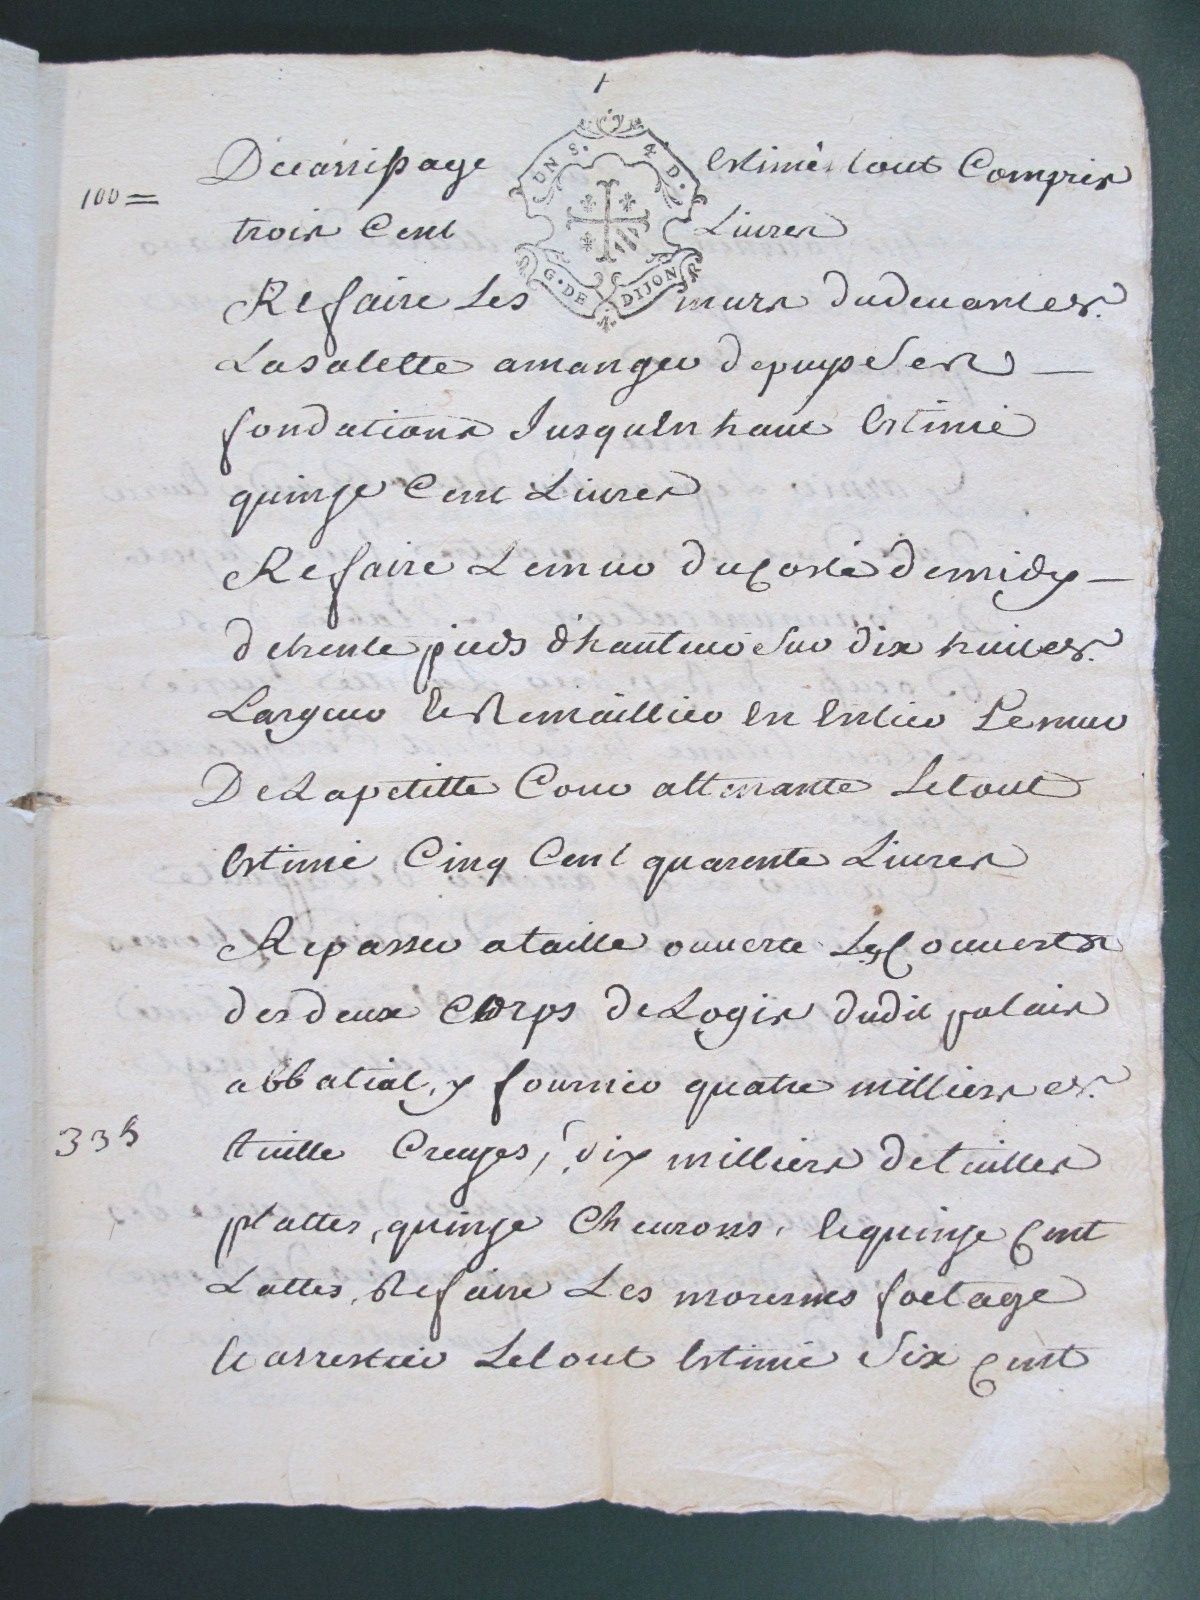 Estimé tout Compris
100=
trois Cent Livres
UN S. 4 D.
G. DE DIJON
Refaire Les murs dudevant et
Lasalette amanger depuys Ses
fondations Jusquenhaut Estimé
quinze Cent Livres
Refaire Lemur ducosté demidy
detrente pieds d'hauteur Sur dix huit et
Largeur et Remaillier En Entier Lemur
DeLapetitte Cour attenante Letout
Estimé Cinq Cent quarente Livres
Repasser ataille ouverte Les Couverts
desdeux Corps deLogis dudit palais
abbatial, y fournir quatre milliers et
335
tuille Creuses, dix milliers detuilles
plattes, quinze Chevrons, et quinze Cent
Lattes, Refaire Les moresnes foetage
et arrestier Letout Estimé Six Cent